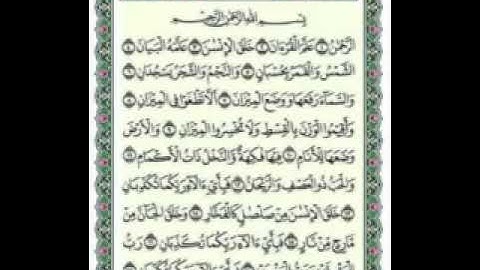 بِسْمِ اللَّهِ الرَّحْمَٰنِ الرَّحِيمِ
الرَّحْمَٰنُ ۝١ عَلَّمَ الْقُرْءَانَ ۝٢ خَلَقَ الْإِنسَٰنَ ۝٣ عَلَّمَهُ الْبَيَانَ ۝٤
الشَّمْسُ وَالْقَمَرُ بِحُسْبَانٍ ۝٥ وَالنَّجْمُ وَالشَّجَرُ يَسْجُدَانِ ۝٦
وَالسَّمَآءَ رَفَعَهَا وَوَضَعَ الْمِيزَانَ ۝٧ أَلَّا تَطْغَوْا۟ فِى الْمِيزَانِ ۝٨
وَأَقِيمُوا۟ الْوَزْنَ بِالْقِسْطِ وَلَا تُخْسِرُوا۟ الْمِيزَانَ ۝٩ وَالْأَرْضَ
وَضَعَهَا لِلْأَنَامِ ۝١٠ فِيهَا فَٰكِهَةٌ وَالنَّخْلُ ذَاتُ الْأَكْمَامِ ۝١١
وَالْحَبُّ ذُو الْعَصْفِ وَالرَّيْحَانُ ۝١٢ فَبِأَىِّ ءَالَآءِ رَبِّكُمَا تُكَذِّبَانِ
۝١٣ خَلَقَ الْإِنسَٰنَ مِن صَلْصَٰلٍ كَالْفَخَّارِ ۝١٤ وَخَلَقَ الْجَآنَّ مِن
مَّارِجٍ مِّن نَّارٍ ۝١٥ فَبِأَىِّ ءَالَآءِ رَبِّكُمَا تُكَذِّبَانِ ۝١٦ رَبُّ